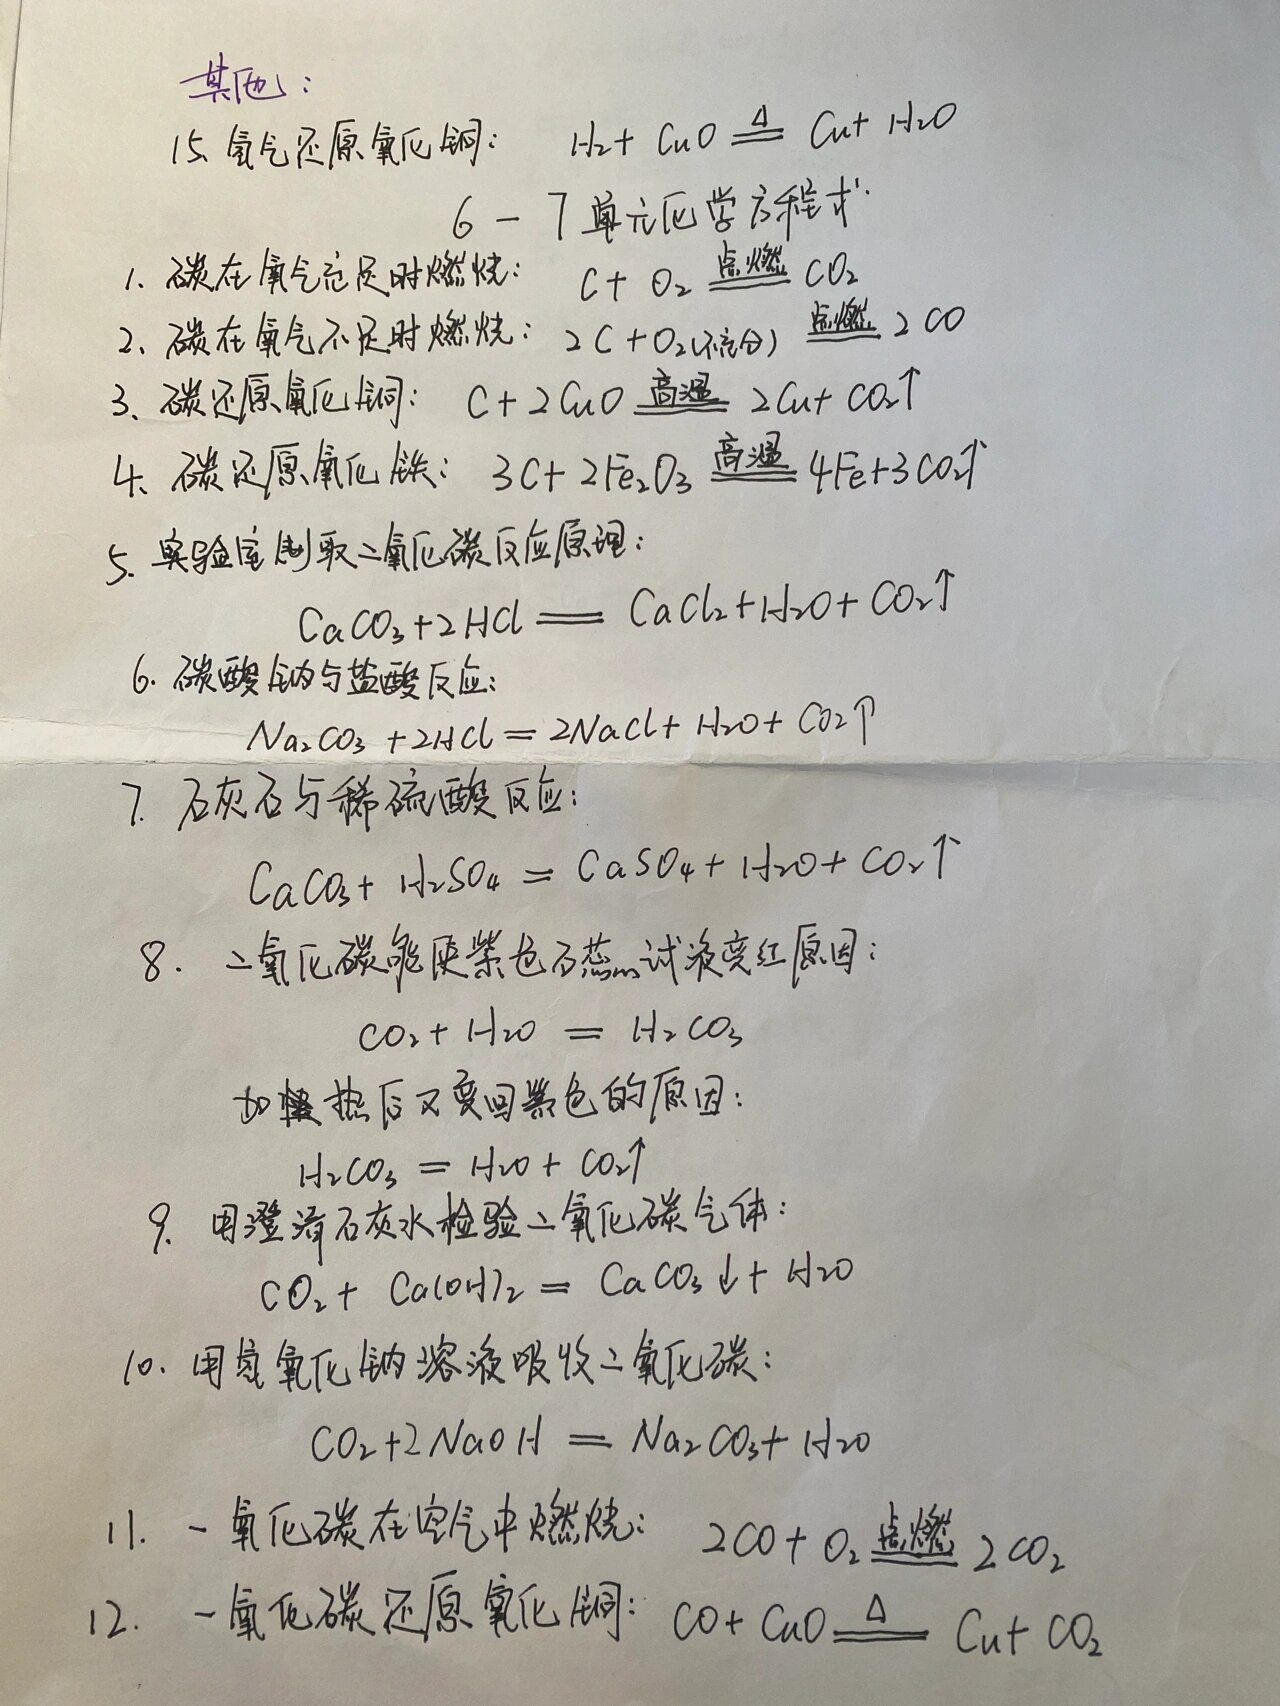 其他：
15、氢气还原氧化铜： H₂+ CuO ≜ Cu+ H₂O
6-7单元化学方程式
1、碳在氧气充足时燃烧： C+ O₂ 点燃 CO₂
2、碳在氧气不足时燃烧： 2C+O₂(不充分) 点燃 2CO
3、碳还原氧化铜： C+2CuO 高温 2Cu+ CO₂↑
4、碳还原氧化铁： 3C+2Fe₂O₃ 高温 4Fe+3CO₂↑
5、实验室制取二氧化碳反应原理：
CaCO₃+2HCl == CaCl₂+H₂O+CO₂↑
6、碳酸钠与盐酸反应：
Na₂CO₃+2HCl=2NaCl+H₂O+CO₂↑
7、石灰石与稀硫酸反应：
CaCO₃+H₂SO₄=CaSO₄+H₂O+CO₂↑
8. 二氧化碳能使紫色石蕊试液变红原因：
CO₂+H₂O = H₂CO₃
加热后又变回紫色的原因：
H₂CO₃=H₂O+CO₂↑
9、用澄清石灰水检验二氧化碳气体：
CO₂+ Ca(OH)₂= CaCO₃↓+ H₂O
10、用氢氧化钠溶液吸收二氧化碳：
CO₂+2NaOH = Na₂CO₃+H₂O
11. 一氧化碳在空气中燃烧： 2CO+O₂ 点燃 2CO₂
12. 一氧化碳还原氧化铜： CO+CuO ≜ Cu+ CO₂